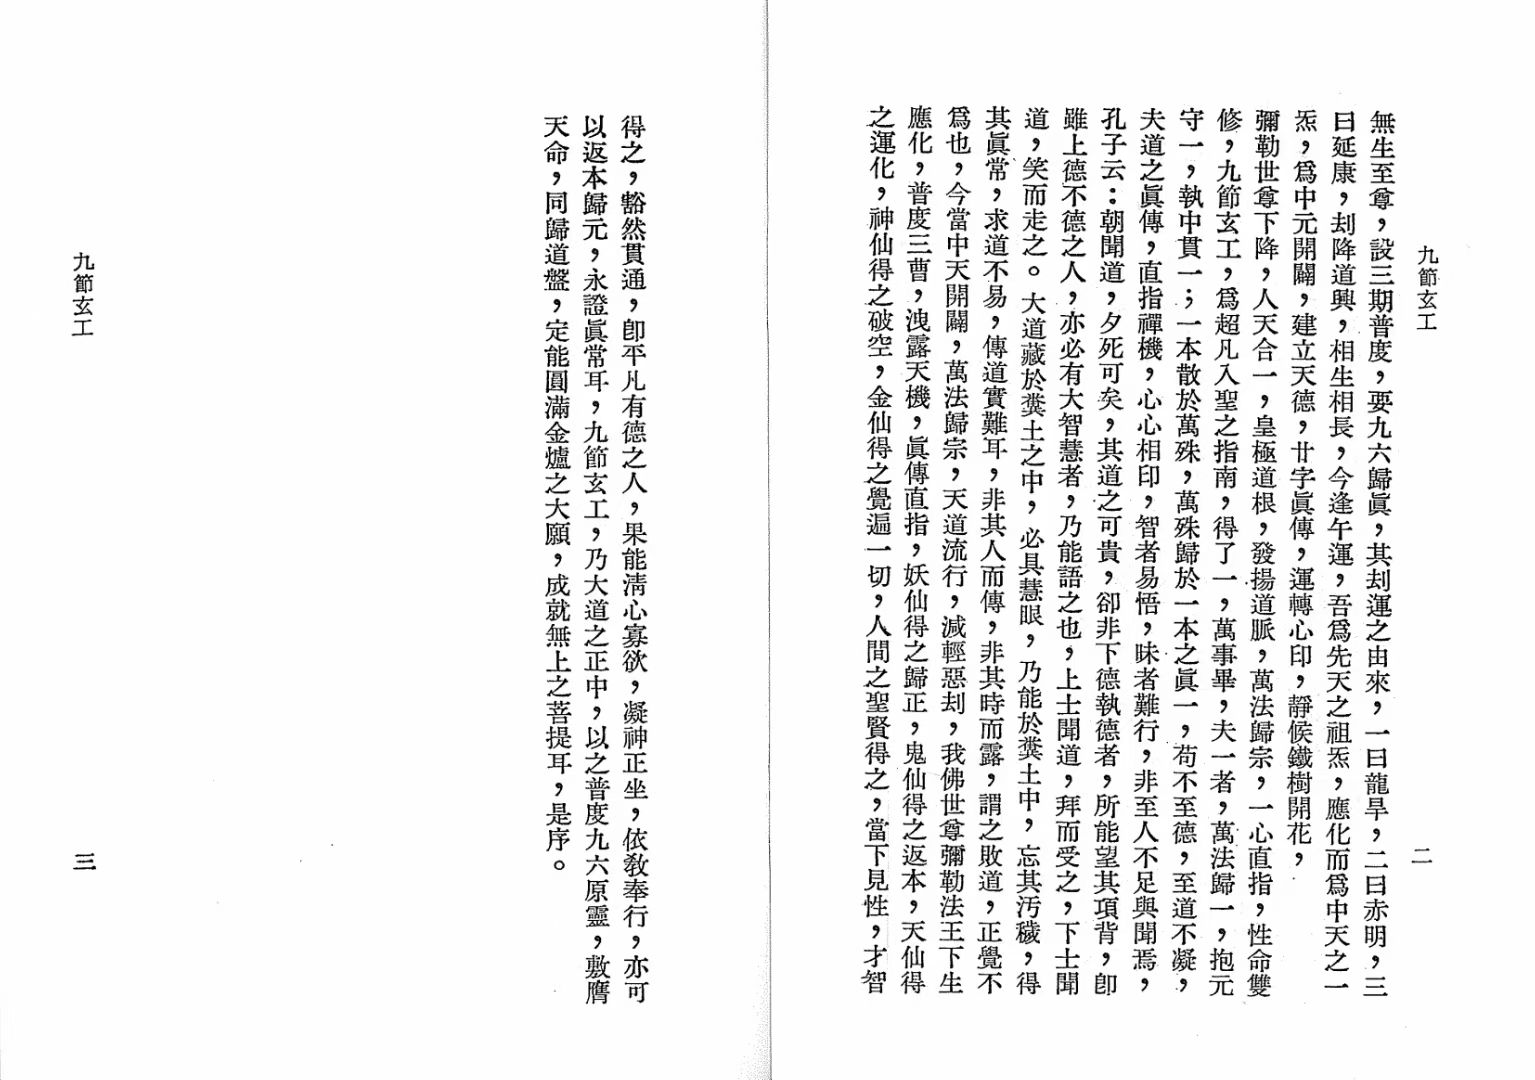 九節玄工
二
無生至尊，設三期普度，要九六歸眞，其刦運之由來，一曰龍旱，二曰赤明，三
曰延康，刦降道興，相生相長，今逢午運，吾爲先天之祖炁，應化而爲中天之一
炁，爲中元開闢，建立天德，廿字眞傳，運轉心印，靜候鐵樹開花，
彌勒世尊下降，人天合一，皇極道根，發揚道脈，萬法歸宗，一心直指，性命雙
修，九節玄工，爲超凡入聖之指南，得了一，萬事畢，夫一者，萬法歸一，抱元
守一，執中貫一；一本散於萬殊，萬殊歸於一本之眞一，苟不至德，至道不凝，
夫道之眞傳，直指禪機，心心相印，智者易悟，昧者難行，非至人不足與聞焉，
孔子云：朝聞道，夕死可矣，其道之可貴，卻非下德執德者，所能望其項背，卽
雖上德不德之人，亦必有大智慧者，乃能語之也，上士聞道，拜而受之，下士聞
道，笑而走之。大道藏於糞土之中，必具慧眼，乃能於糞土中，忘其汚穢，得
其眞常，求道不易，傳道實難耳，非其人而傳，非其時而露，謂之敗道，正覺不
爲也，今當中天開闢，萬法歸宗，天道流行，減輕惡刦，我佛世尊彌勒法王下生
應化，普度三曹，洩露天機，眞傳直指，妖仙得之歸正，鬼仙得之返本，天仙得
之運化，神仙得之破空，金仙得之覺遍一切，人間之聖賢得之，當下見性，才智
得之，豁然貫通，卽平凡有德之人，果能淸心寡欲，凝神正坐，依敎奉行，亦可
以返本歸元，永證眞常耳，九節玄工，乃大道之正中，以之普度九六原靈，敷膺
天命，同歸道盤，定能圓滿金爐之大願，成就無上之菩提耳，是序。
九節玄工
三